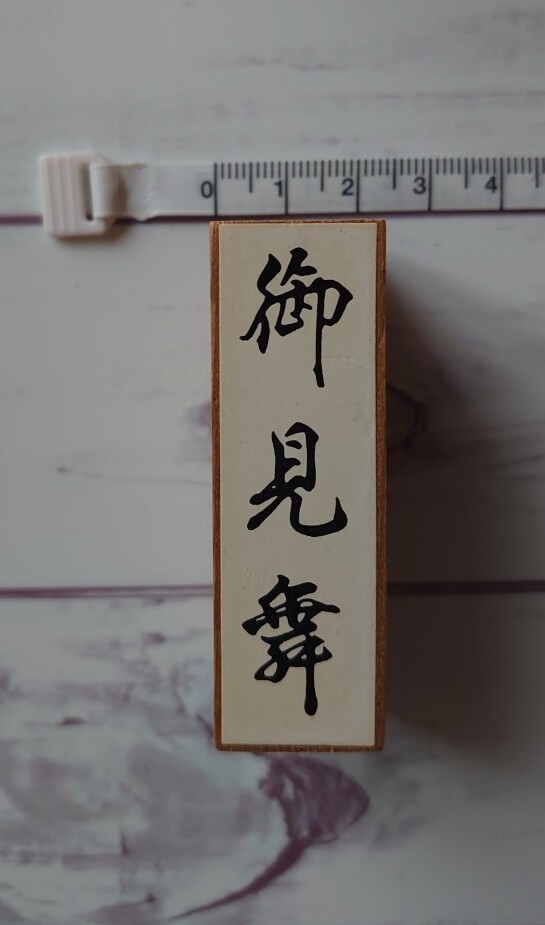 0 1 2 3 4
御見舞